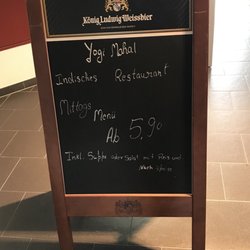 König Ludwig Weissbier
Yogi Mahal
Indisches Restaurant
Mittags
Menü
Ab 5,90
Inkl. Suppe oder Salat mit Reis und